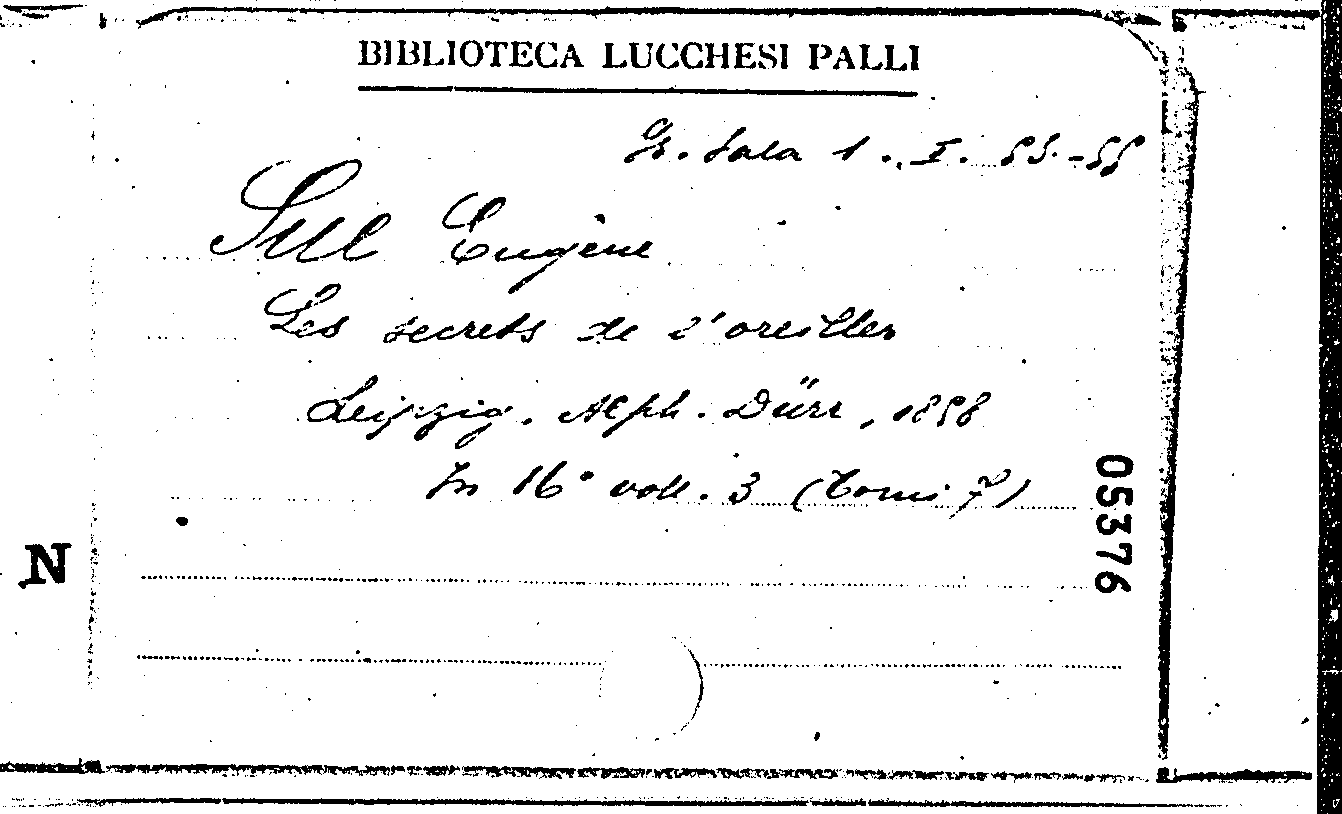 BIBLIOTECA LUCCHESI PALLI
Gr. Sala 1. I. 53.-55
Sue Eugène
Les secrets de l'oreiller
Leipzig. Alph. Dürr, 1858
In 16° voll. 3 (Tomi 7)
05376
N